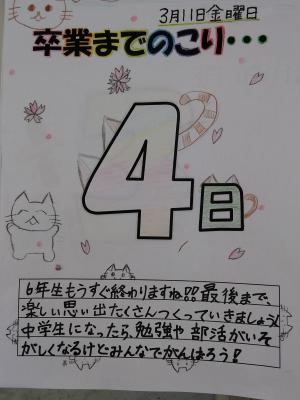 3月11日金曜日
卒業までのこり・・・
4日
6年生もうすぐ終わりますね!!最後まで、
楽しい思い出たくさんつくっていきましょう!
中学生になったら、勉強や部活がいそ
がしくなるけどみんなでがんばろう!